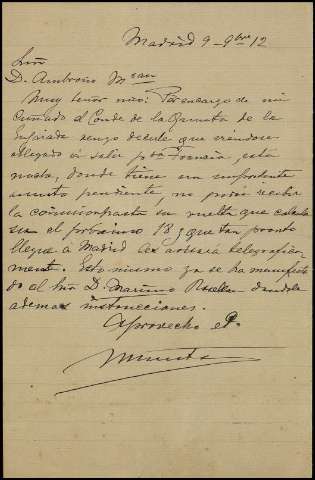 Madrid 9-9bre 12
Sr.
D. Ambrosio
Muy señor mio: Por encargo de mi
cuñado el Conde de la Quinta de la
Enjarada tengo decirle que viendose
obligado á salir para Francia, esta
noche, donde tiene un importante
asunto pendiente, no podrá recibir
la comision hasta su vuelta que calcula
sea el próximo 18 y que tan pronto
llegue á Madrid les avisaria telegrafica-
mente. Esto mismo ya se ha manifesta
do al Sr. D. Mariano dandole
ademas instrucciones.
Aprovecho et.